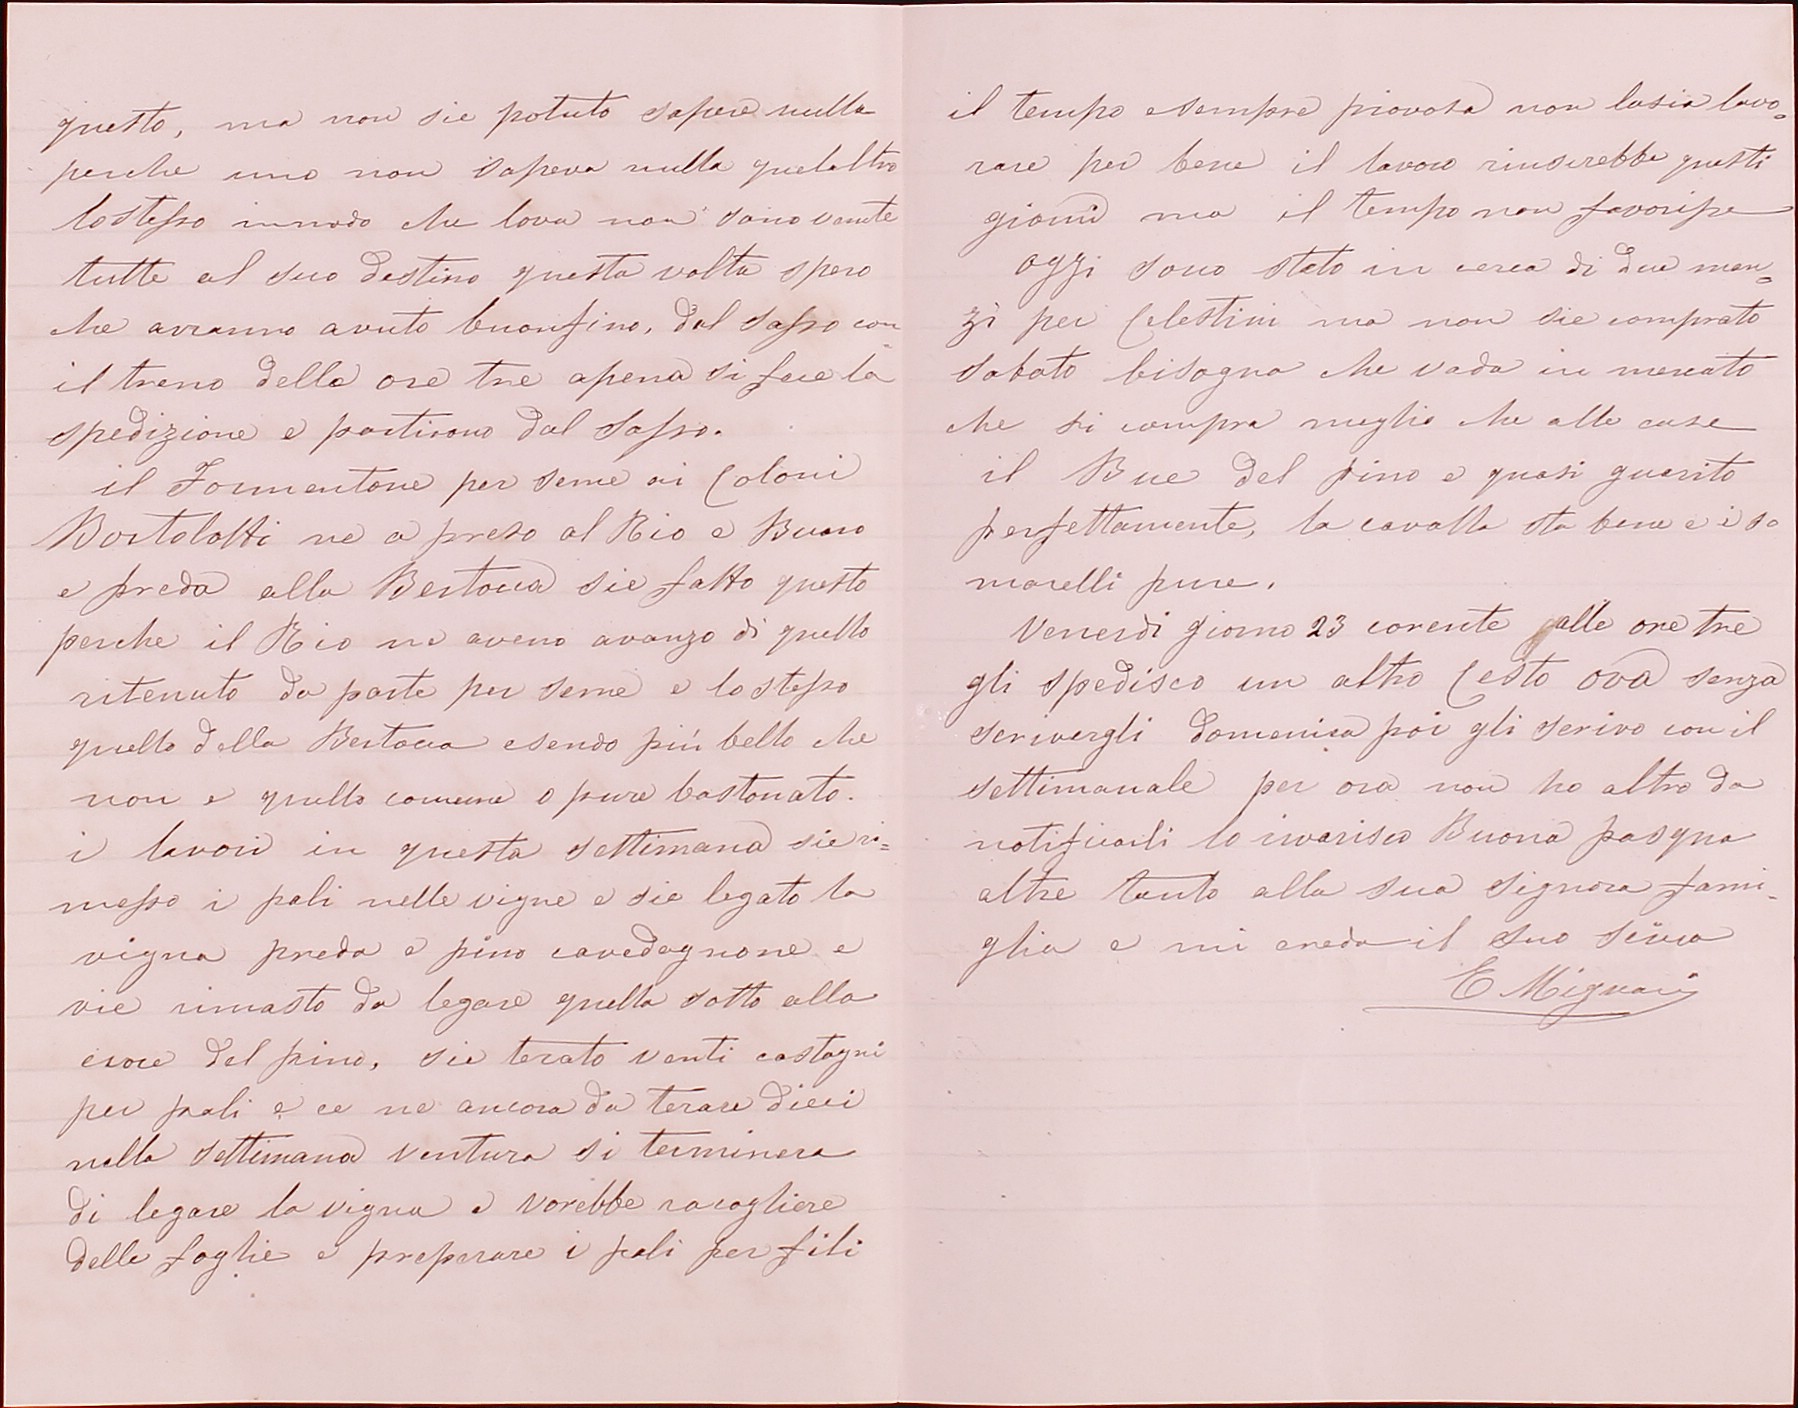 questo, ma non sie potuto sapere nulla
perche uno non sapeva nulla quelaltro
lostesso inmodo che lova non sono venute
tutte al suo destino questa volta spero
che avranno avuto buonfino, dal Sasso con
il treno delle ore tre apena si fece la
spedizione e partirono dal Sasso.
il Formentone per seme ai Coloni
Bortolotti ne a preso al Rio e Buaro
e preda alla Bertocca sie fatto questo
perche il Rio ne aveno avanzo di quello
ritenuto da parte per seme e lo stesso
quello della Bertocca esendo più bello che
non e quello comune o pure bastonato.
i lavori in questa settimana sie ri=
messo i pali nelle vigne e sie legato la
vigna preda e pino cavedagnone e
vie rimasto da legare quella sotto alla
croce del pino, sie terato venti castagni
per pali e ce ne ancora da terare dieci
nella settimana ventura si terminera
di legare la vigna e vorebbe racogliere
delle foglie e preparare i pali per fili
il tempo e sempre piovoso non lasia lavo=
rare per bene il lavoro riuscirebbe questi
giorni ma il tempo non favorisse
oggi sono stato in cerca di due man=
zi per Celestini ma non sie comprato
sabato bisogna che vada in mercato
che si compra meglio che alle case
il Bue del pino e quasi guarito
perfettamente, la cavalla sta bene e i so
marelli pure.
Venerdi giorno 23 corente alle ore tre
gli spedisco un altro Cesto ova senza
scrivergli domenica poi gli scrivo con il
settimanale per ora non ho altro da
notificarli lo riverisco Buona pasqua
altre tanto alla sua signora fami=
glia e mi creda il suo servo
E Mignani